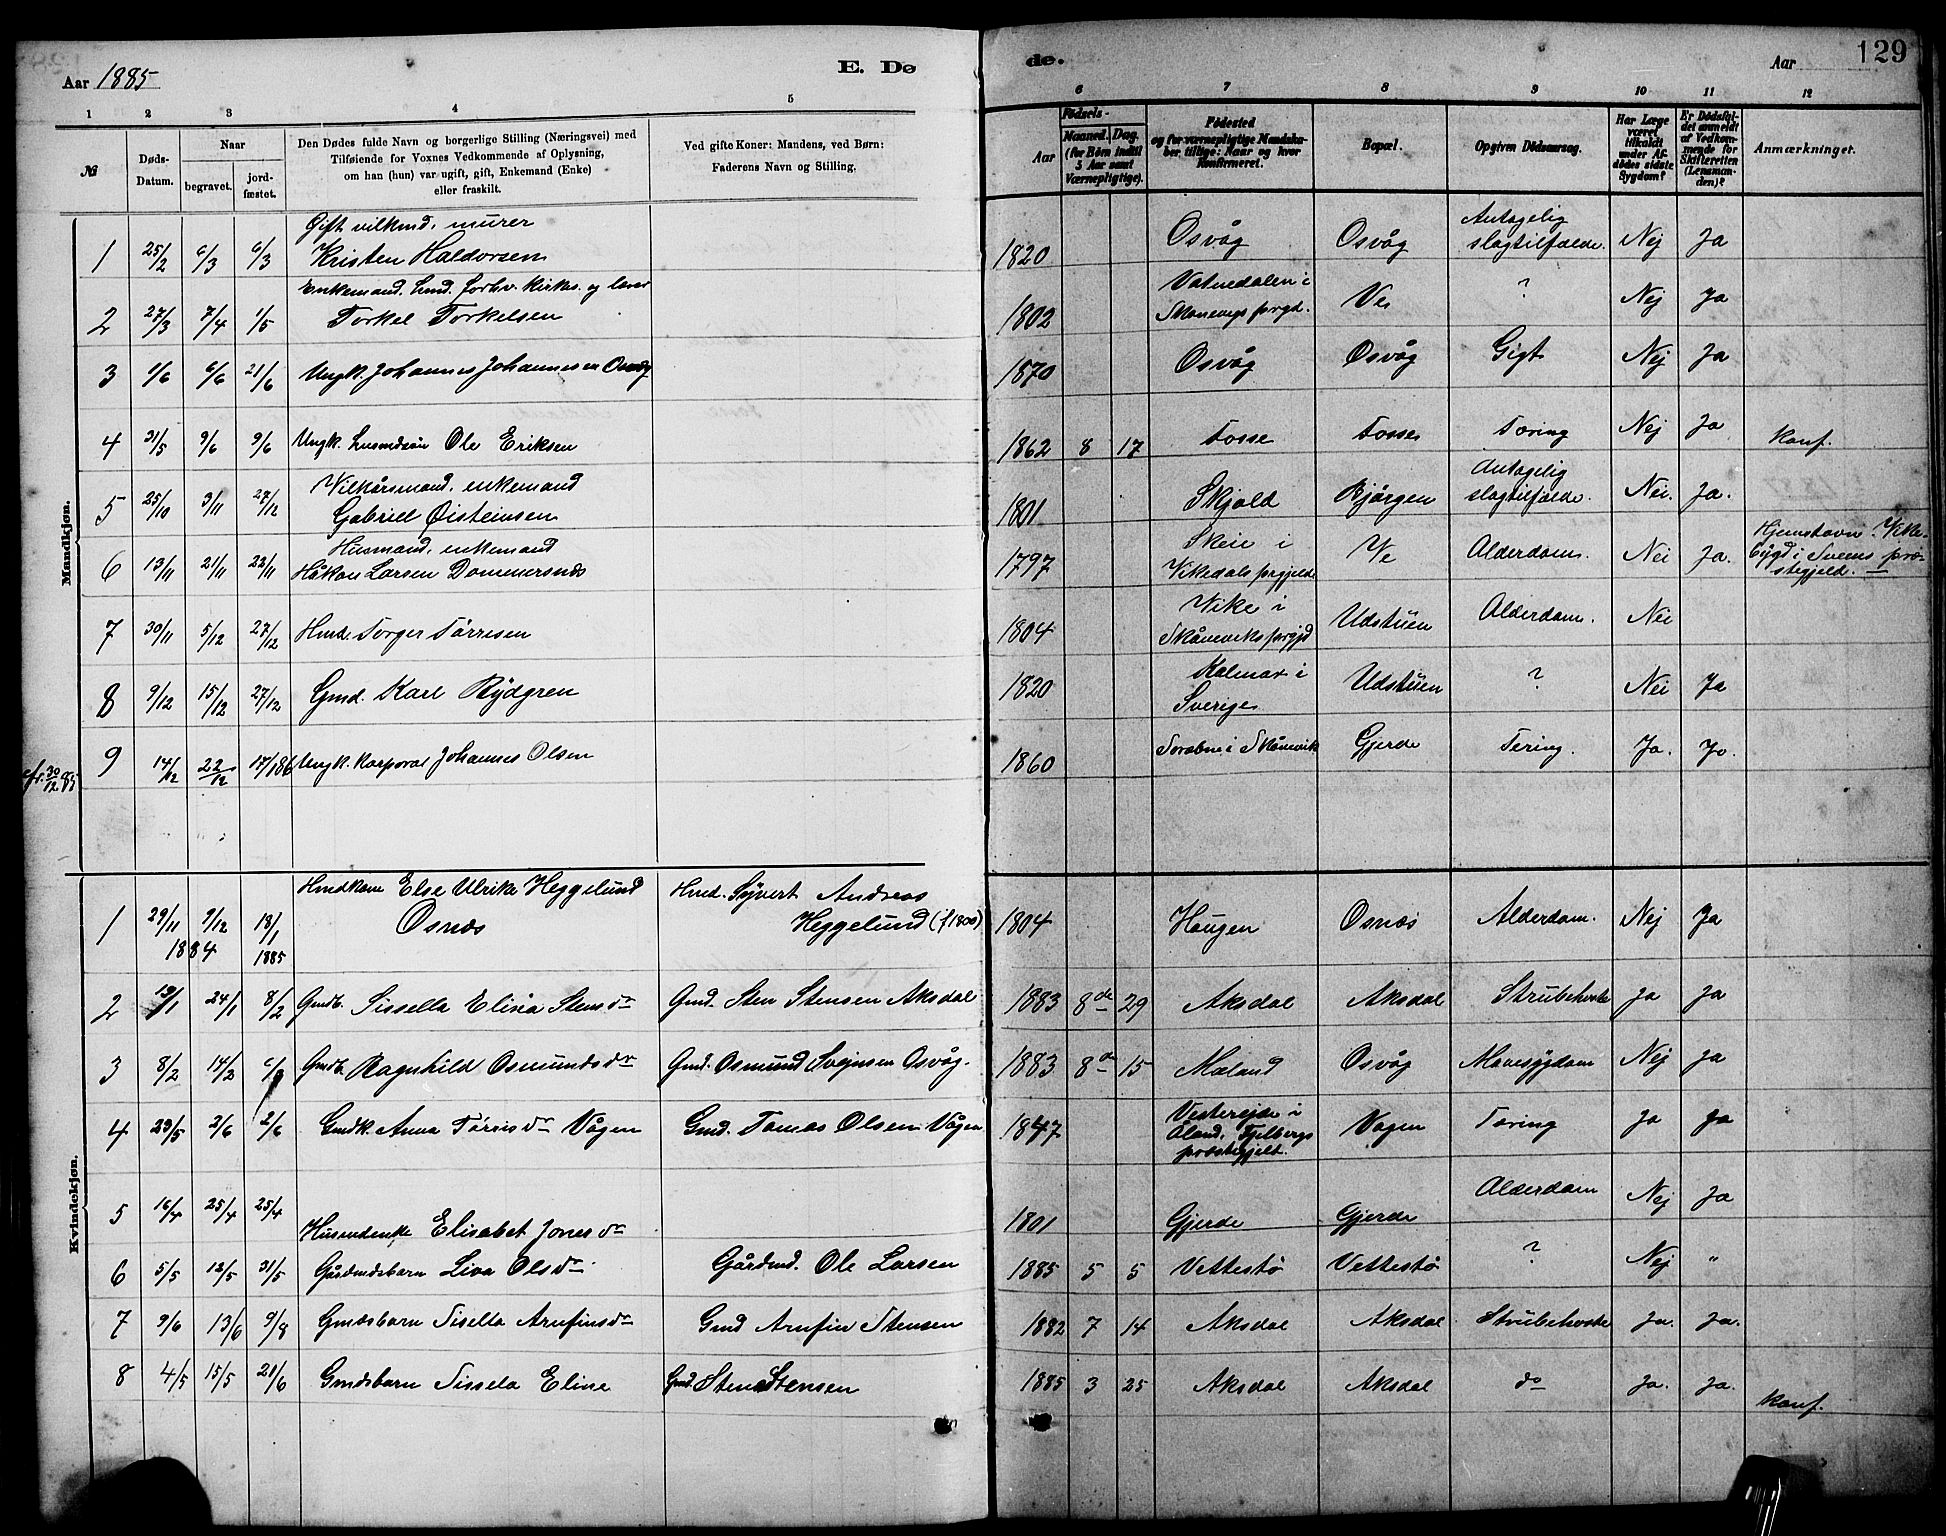 Aar 1885
E. Dø
de.
Aar
129
1 2 3 4 5
6 7 8 9 10 11 12
№
Døds-
Datum.
Naar
begravet.
jord-
fæstet.
Den Dødes fulde Navn og borgerlige Stilling (Næringsvei) med
Tilføiende for Voxnes Vedkommende af Oplysning,
om han (hun) var ugift, gift, Enkemand (Enke)
eller fraskilt.
Ved gifte Koner: Mandens, ved Børn:
Faderens Navn og Stilling.
Fødsels-
Aar
Maaned. Dag.
(for Børn indtil
5 Aar samt
Værnepligtige).
Fødested
og for værnepligtige Mandska-
ber tillige: Naar og hvor
Konfirmeret.
Bopæl.
Opgiven Dødsaarsag.
Har Læge
været
tilkaldt
under Af-
dødes sidste
Sygdom?
Er Dødsfal-
det anmeldt
af Vedkom-
mende for
Skifteretten
(Lensman-
den)?
Anmærkninger.
Mandkjøn.
Gift vilkmd. murer
1 25/2 6/3 6/3 Kristen Haldorsen 1820 Osvåg Osvåg Antagelig slagtilfælde. Nej Ja
Enkemand. Lmd. forhv. kirkes. og lærer
2 27/3 7/4 1/5 Torkel Torkelsen 1802 Vatnedalen i Skonevigs prgd. Ve ? Nej Ja
3 1/6 6/6 21/6 Ungk. Johannes Johannesen Osvåg 1870 Osvåg Osvåg Gigt Nej Ja
4 31/5 9/6 9/6 Ungk. Ole Eriksen 1862 8 17 Fosse Fosse Tæring Nej Ja konf.
Vilkårsmand, enkemand
5 25/10 3/11 27/12 Gabriel Øisteinsen 1801 Skjold Bjørgen Antagelig slagtilfælde. Nei. Ja.
Husmand, enkemand
6 13/11 21/11 22/11 Håkon Larsen Dommersnes 1797 Skeie i Vikedals prgjeld Ve Alderdom. Nei Ja. Hjemstavn Vike-
bygd i Sveens præ-
stegjeld.
7 30/11 5/12 27/12 Hmd. Torger Tørresen 1804 Vike i Skåneviks prgjd Udstuen Alderdom. Nei
8 9/12 15/12 27/12 Gmd. Karl Rydgren 1820 Kalmar i Sverige Udstuen ? Nei Ja
9 14/12 22/12 17/1 86 Ungk. korporal Johannes Olsen 1860 i Skånevik Gjerde Tering. Ja. Ja.
30/12 85
Kvindekjøn.
1 29/11 9/12 1884 18/1 1885 Hmdkone Else Ulrika Heggelund Osnæs Hmd. Syvert Andreas Heggelund (f 1800) 1804 Haugen Osnæs Alderdom. Nej Ja
2 13/1 24/1 8/2 Gmdb. Sissella Elisia Stensdr Gmd. Sten Stensen Aksdal 1883 8de 29 Aksdal Aksdal Strubehoste Ja Ja
3 8/2 14/2 Gmdb. Ragnhild Osmundsdr Gmd. Osmund Svejnsen Osvåg. 1883 8de 15 Mæland Osvåg Mavesygdom Nej Ja
4 23/5 2/6 2/6 Gmdk. Anna Tørrisdr Vågen Gmd. Tomas Olsen Vågen 1847 Vestereide i Øland, Fjelbergs præstegjelt. Vågen Tæring Ja Ja
5 16/4 25/4 25/4 Husmdenke Elisabet Jonesdr 1801 Gjerde Gjerde Alderdom Nej Ja
6 5/5 12/5 31/5 Gårdmdsbarn Liva Olsdr Gårdmd. Ole Larsen 1885 5 5 Vettestø Vettestø ? Nej "
7 9/6 13/6 9/8 Gmdsbarn Sisella Arnfinsdr Gmd Arnfin Stensen 1882 7 14 Aksdal Aksdal Strubehoste Ja. Ja.
8 4/5 15/5 21/6 Gmdsbarn Sissela Eline Gmd. Sten Stensen 1885 3 25 Aksdal Aksdal do Ja. Ja. konf.